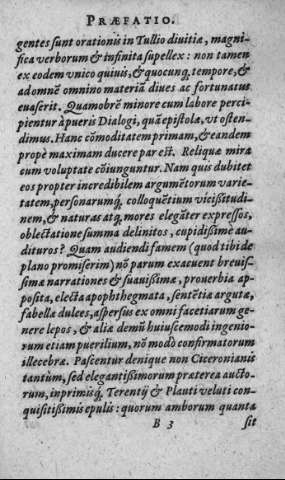 PRÆFATIO.
gentes sunt orationis in Tullio divitiæ, magni-
fica verborum & infinita supellex: non tamen
ex eodem vnico quiuis, & quocunq; tempore, &
ad omnē omnino materiā diues ac fortunatus
euaserit. Quamobrē minore cum labore perci-
pientur à pueris Dialogi, quā epistolæ, vt osten-
dimus. Hanc cōmoditatem primam, & eandem
propè maximam ducere par est. Reliquæ mira
cum voluptate cōiunguntur. Nam quis dubitet
eos propter incredibilem argumētorum varie-
tatem, personarumq́; colloquētium vicißitudi-
nem, & naturas atq; mores elegāter expressos,
oblectatione summa delinitos, cupidißimè au-
dituros? Quam audiendi famem (quod tibi de
plano promiserim) nō parum exacuent breuis-
simæ narrationes & suauißimæ, prouerbia ap-
posita, electa apophthegmata, sentētiæ argutæ,
fabellæ dulces, aspersus ex omni facetiarum ge-
nere lepos, & aliæ demū huiuscemodi ingenio-
rum etiam puerilium, nō modò confirmatorum
illecebræ. Pascentur denique non Ciceronianis
tantùm, sed elegantißimorum præterea aucto-
rum, inprimisq́; Terentij & Plauti veluti con-
quisitißimis epulis: quorum amborum quanta
B 3 sit